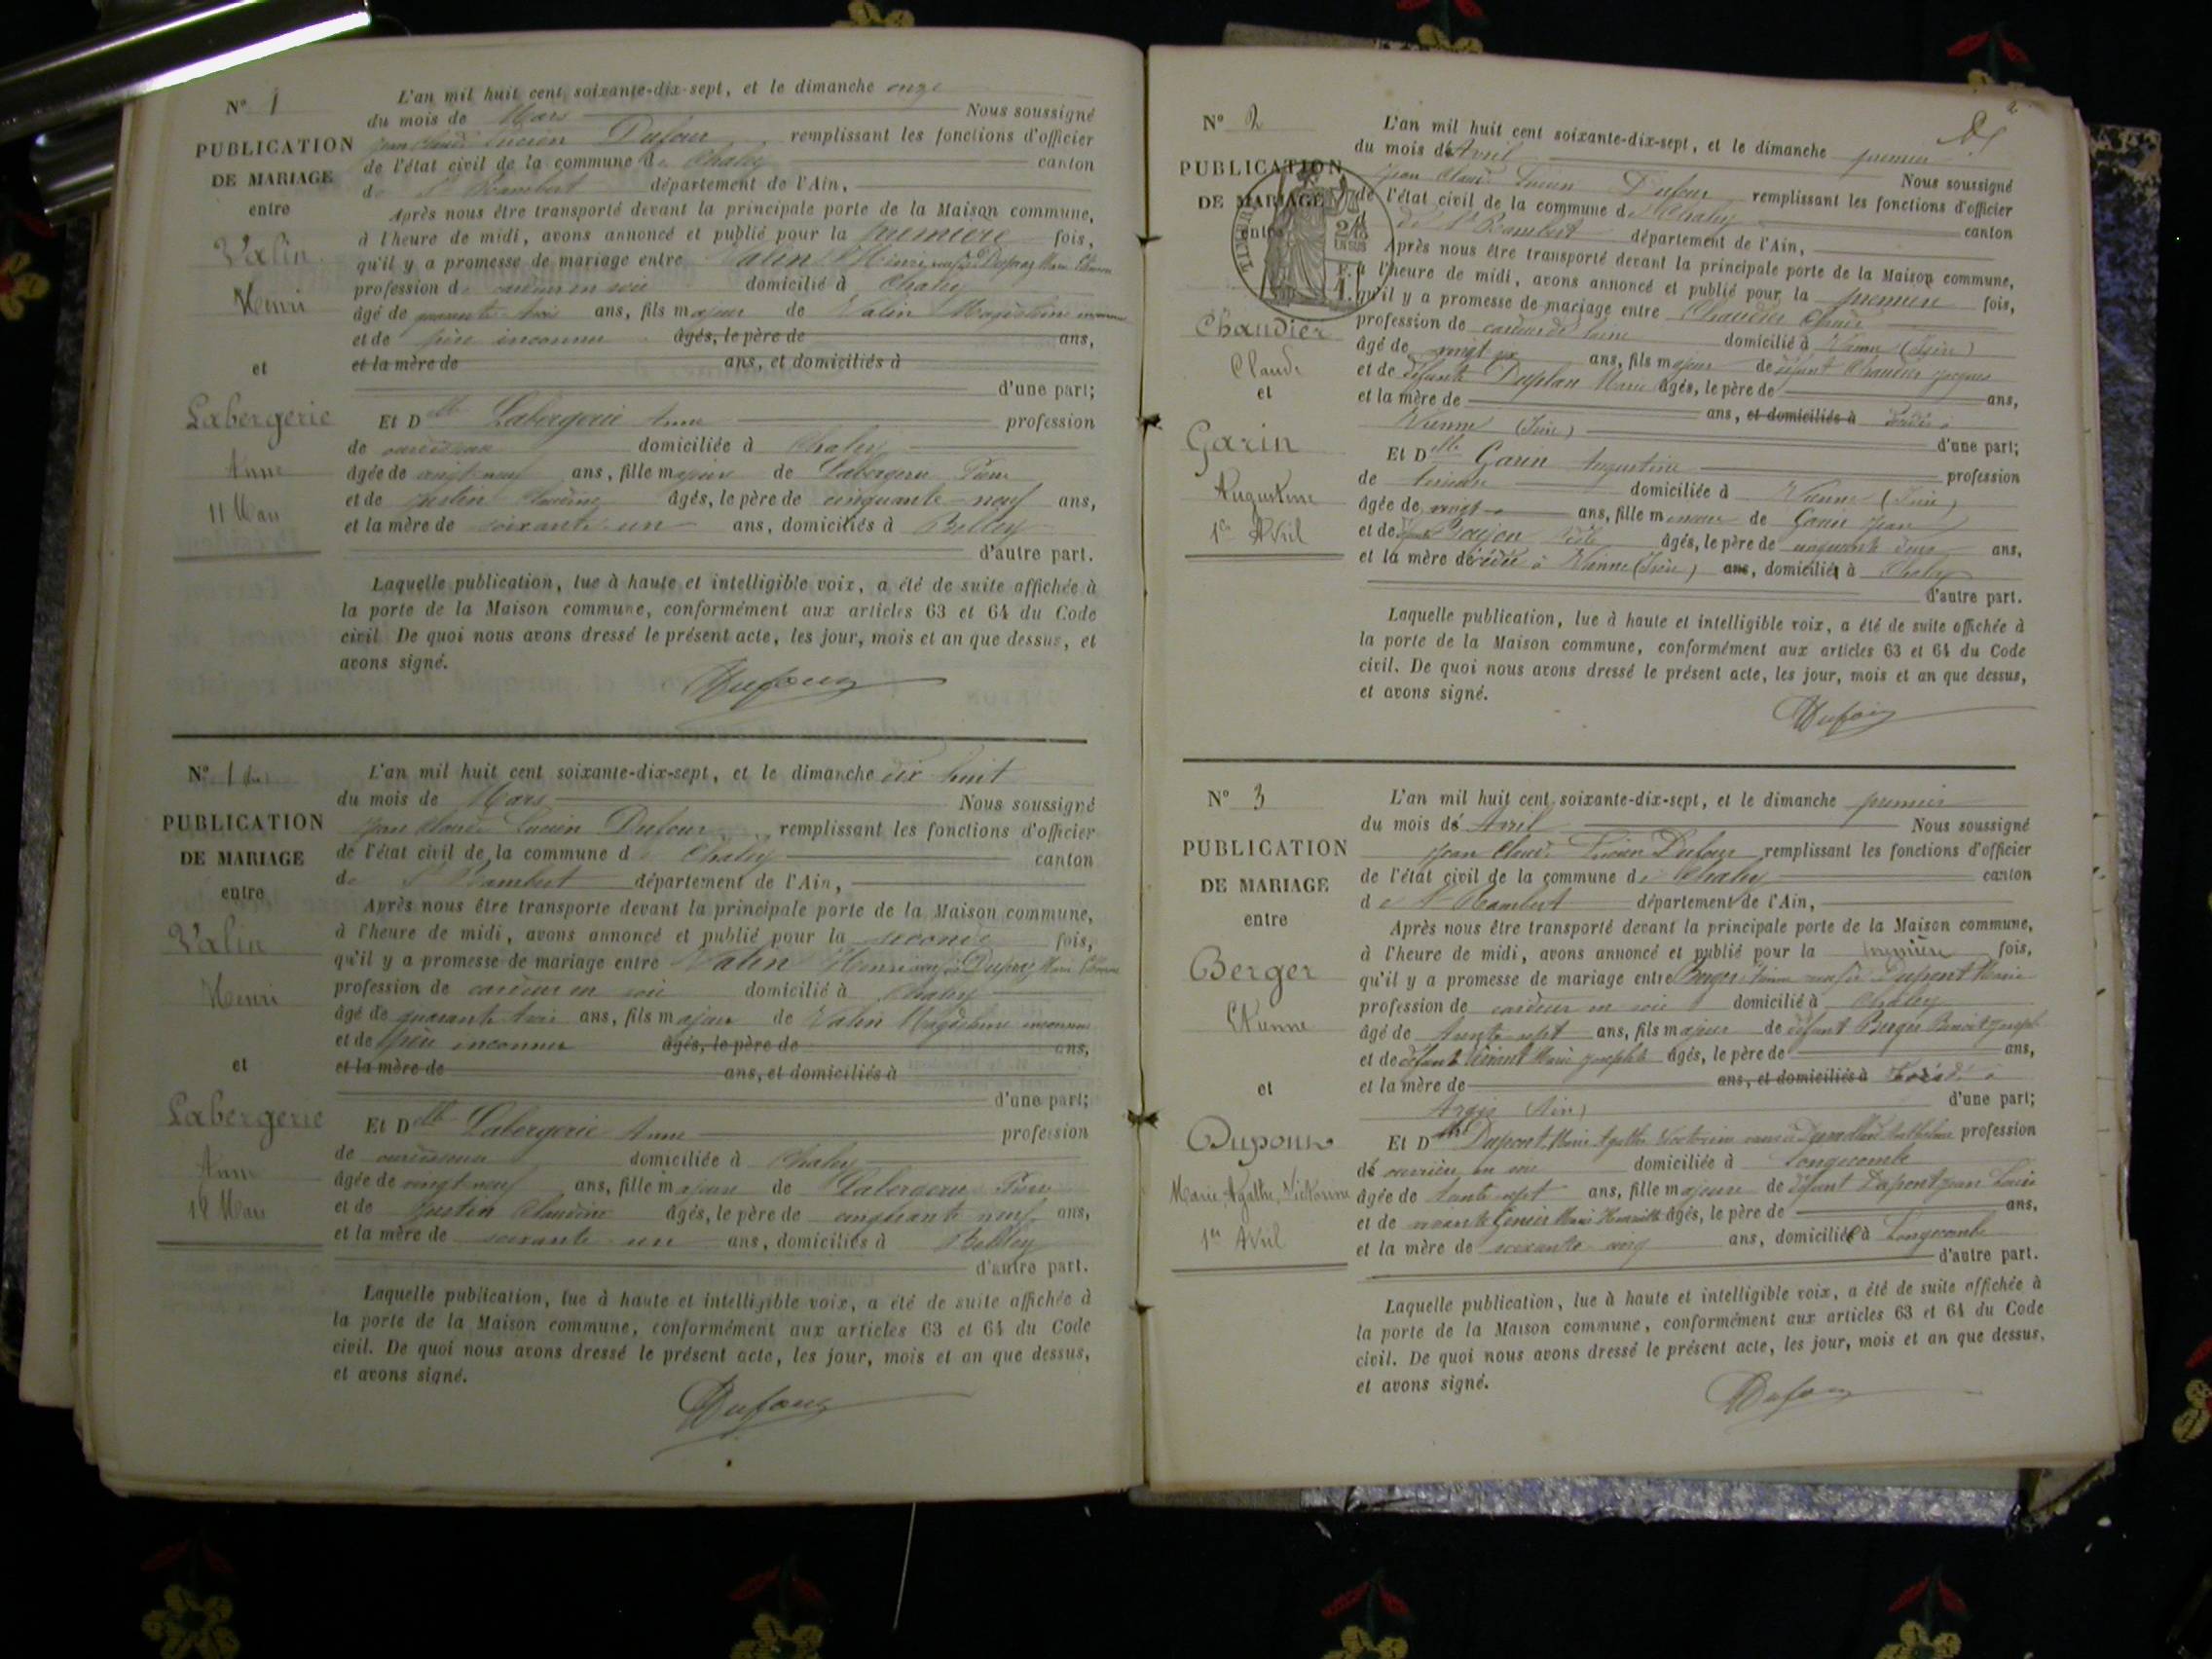 N° 1
PUBLICATION
DE MARIAGE
entre
Valin
Henri
et
Labergerie
Anne
11 Mars
L'an mil huit cent soixante-dix-sept, et le dimanche onze
du mois de Mars Nous soussigné
Jean Claude Lucien Dufour remplissant les fonctions d'officier
de l'état civil de la commune de Chaley canton
de St Rambert département de l'Ain,
Après nous être transporté devant la principale porte de la Maison commune,
à l'heure de midi, avons annoncé et publié pour la première fois,
qu'il y a promesse de mariage entre Valin Henri Marie
profession de cardeur en soie domicilié à Chaley
âgé de quarante trois ans, fils majeur de Valin
et de père inconnu âgés, le père de ans,
et la mère de ans, et domiciliés à
d'une part;
Et Dlle Labergerie Anne profession
de domiciliée à Chaley
âgée de vingt neuf ans, fille majeure de Labergerie
et de Justin Claudine âgés, le père de cinquante neuf ans,
et la mère de soixante un ans, domiciliés à Belley
d'autre part.
Laquelle publication, lue à haute et intelligible voix, a été de suite affichée à
la porte de la Maison commune, conformément aux articles 63 et 64 du Code
civil. De quoi nous avons dressé le présent acte, les jour, mois et an que dessus, et
avons signé.
Dufour
N° 1
PUBLICATION
DE MARIAGE
entre
Valin
Henri
et
Labergerie
Anne
18 Mars
L'an mil huit cent soixante-dix-sept, et le dimanche dix huit
du mois de Mars Nous soussigné
Jean Claude Lucien Dufour remplissant les fonctions d'officier
de l'état civil de la commune de Chaley canton
de St Rambert département de l'Ain,
Après nous être transporté devant la principale porte de la Maison commune,
à l'heure de midi, avons annoncé et publié pour la seconde fois,
qu'il y a promesse de mariage entre Valin Henri Marie
profession de cardeur en soie domicilié à Chaley
âgé de quarante trois ans, fils majeur de Valin
et de père inconnu âgés, le père de ans,
et la mère de ans, et domiciliés à
d'une part;
Et Dlle Labergerie Anne profession
de domiciliée à Chaley
âgée de vingt neuf ans, fille majeure de Labergerie
et de Justin Claudine âgés, le père de cinquante neuf ans,
et la mère de soixante un ans, domiciliés à Belley
d'autre part.
Laquelle publication, lue à haute et intelligible voix, a été de suite affichée à
la porte de la Maison commune, conformément aux articles 63 et 64 du Code
civil. De quoi nous avons dressé le présent acte, les jour, mois et an que dessus,
et avons signé.
Dufour
2
N° 2
PUBLICATION
DE MARIAGE
entre
Chaudier
Claude
et
Garin
Augustine
1er Avril
L'an mil huit cent soixante-dix-sept, et le dimanche premier
du mois d'Avril Nous soussigné
Jean Claude Lucien Dufour remplissant les fonctions d'officier
de l'état civil de la commune de Chaley canton
de St Rambert département de l'Ain,
Après nous être transporté devant la principale porte de la Maison commune,
à l'heure de midi, avons annoncé et publié pour la première fois,
qu'il y a promesse de mariage entre Chaudier Claude
profession de cardeur de laine domicilié à Vienne (Isère)
âgé de vingt ans, fils majeur de défunt Chaudier Jacques
et de défunte Duplan Marie âgés, le père de ans,
et la mère de ans, et domiciliés à décédés à
Vienne (Isère) d'une part;
Et Dlle Garin Augustine profession
de domiciliée à Vienne (Isère)
âgée de vingt ans, fille mineure de Garin Jean
et de âgés, le père de cinquante deux ans,
et la mère décédée à Vienne (Isère) ans, domicilié à Chaley
d'autre part.
Laquelle publication, lue à haute et intelligible voix, a été de suite affichée à
la porte de la Maison commune, conformément aux articles 63 et 64 du Code
civil. De quoi nous avons dressé le présent acte, les jour, mois et an que dessus,
et avons signé.
Dufour
N° 3
PUBLICATION
DE MARIAGE
entre
Berger
Etienne
et
Dupont
Marie, Agathe, Victorine
1er Avril
L'an mil huit cent soixante-dix-sept, et le dimanche premier
du mois d'Avril Nous soussigné
Jean Claude Lucien Dufour remplissant les fonctions d'officier
de l'état civil de la commune de Chaley canton
de St Rambert département de l'Ain,
Après nous être transporté devant la principale porte de la Maison commune,
à l'heure de midi, avons annoncé et publié pour la première fois,
qu'il y a promesse de mariage entre Berger Etienne Dupont Marie
profession de cardeur en soie domicilié à Chaley
âgé de trente sept ans, fils majeur de défunt Berger Benoit Joseph
et de défunte Marie Josephte âgés, le père de ans,
et la mère de ans, et domiciliés à décédé à
Argis (Ain) d'une part;
Et Dlle Dupont Marie Agathe Victorine profession
d'ouvrière en soie domiciliée à Longecombe
âgée de trente sept ans, fille majeure de défunt Dupont Jean Louis
et de vivante Genier Marie âgés, le père de ans,
et la mère de soixante cinq ans, domiciliée à Longecombe
d'autre part.
Laquelle publication, lue à haute et intelligible voix, a été de suite affichée à
la porte de la Maison commune, conformément aux articles 63 et 64 du Code
civil. De quoi nous avons dressé le présent acte, les jour, mois et an que dessus,
et avons signé.
Dufour